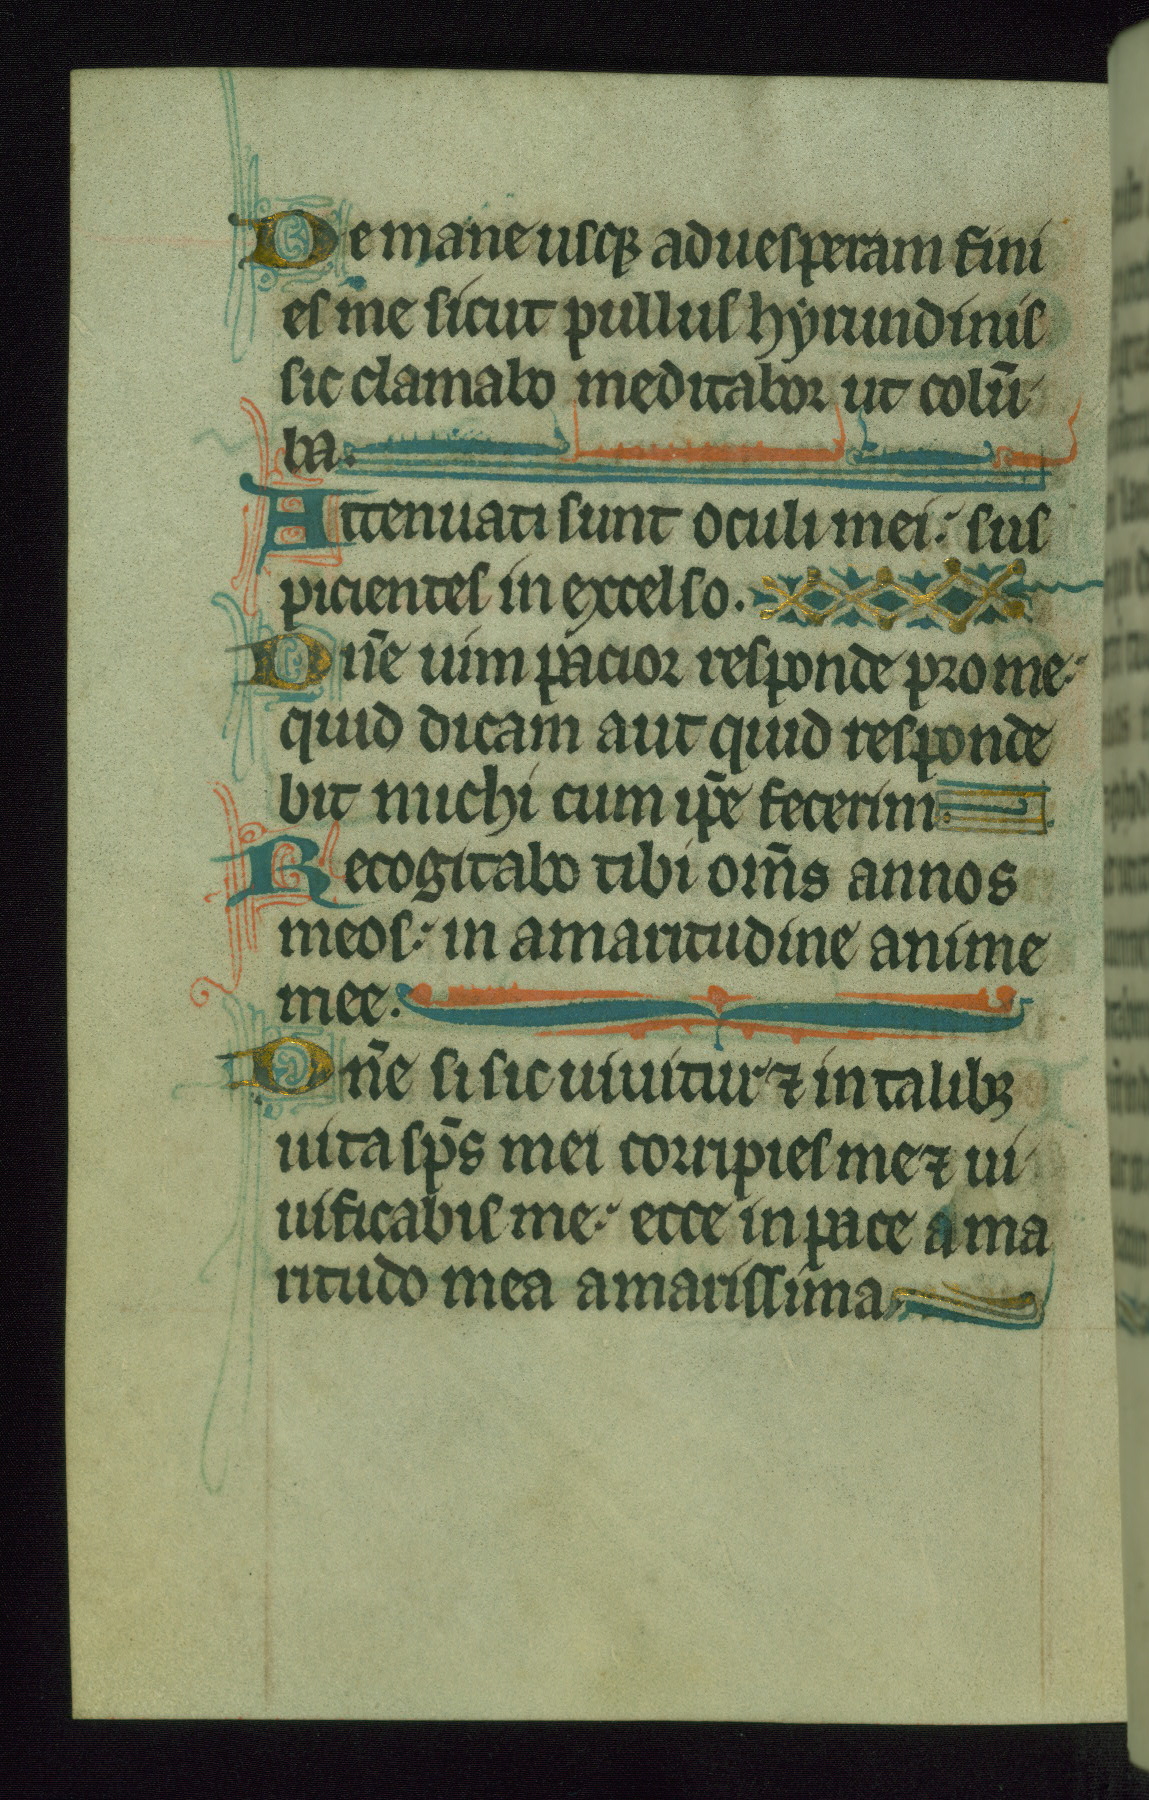 De mane usqꝫ ad uesperam fini
es me sicut pullus hyrundinis
sic clamabo meditabor ut colū
ba.
Attenuati sunt oculi mei: sus
picientes in excelso.
Dn̄e uim pacior responde pro me:
quid dicam aut quid responde
bit michi cum ip̄e fecerim.
Recogitabo tibi om̄s annos
meos: in amaritudine anime
mee.
Dn̄e si sic uiuitur ⁊ in talibꝫ
uita sp̄s mei corripies me ⁊ ui
uificabis me: ecce in pace ama
ritudo mea amarissima